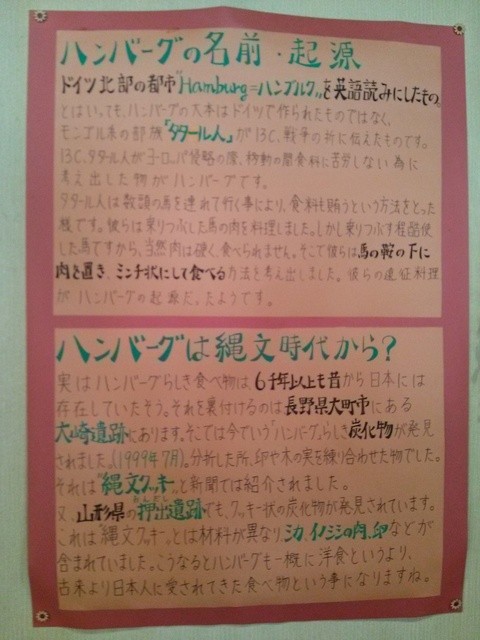 ハンバーグの名前・起源
ドイツ北部の都市"Hamburg=ハンブルク"を英語読みにしたもの。
とはいっても、ハンバーグの大本はドイツで作られたものではなく、
モンゴル系の部族「タタール人」が13C、戦争の折に伝えたものです。
13C、タタール人がヨーロッパ侵略の際、移動の間食料に苦労しない為に
考え出した物がハンバーグです。
タタール人は数頭の馬を連れて行く事により、食料も賄うという方法をとった
様です。彼らは乗りつぶした馬の肉を料理しました。しかし乗りつぶす程酷使
した馬ですから、当然肉は硬く、食べられません。そこで彼らは馬の鞍の下に
肉を置き、ミンチ状にして食べる方法を考え出しました。彼らの遠征料理
がハンバーグの起源だったようです。
ハンバーグは縄文時代から?
実はハンバーグらしき食べ物は、6千年以上も昔から日本には
存在していたそう。それを裏付けるのは長野県大町市にある
大崎遺跡にあります。そこでは今でいう「ハンバーグ」らしき炭化物が発見
されました。(1999年7月)。分析した所、卵や木の実を練り合わせた物でした。
それは"縄文クッキー"と新聞では紹介されました。
又、山形県の押出遺跡でも、クッキー状の炭化物が発見されています。
これは"縄文クッキー"とは材料が異なり、シカ、イノシシの肉、卵などが
含まれていました。こうなるとハンバーグも一概に洋食というより、
古来より日本人に愛されてきた食べ物という事になりますね。